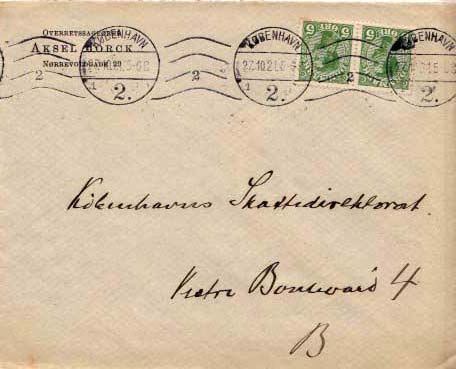 OVERRETSSAGFØRER
AKSEL BORCK
NØRREVOLDGADE 29
KØBENHAVN
2.
KØBENHAVN
27.10.21.
2.
KØBENHAVN
2.
2
2
2
5 ØRE 5
5 ØRE 5
Københavns Skattedirektorat.
Vester Boulevard 4
B